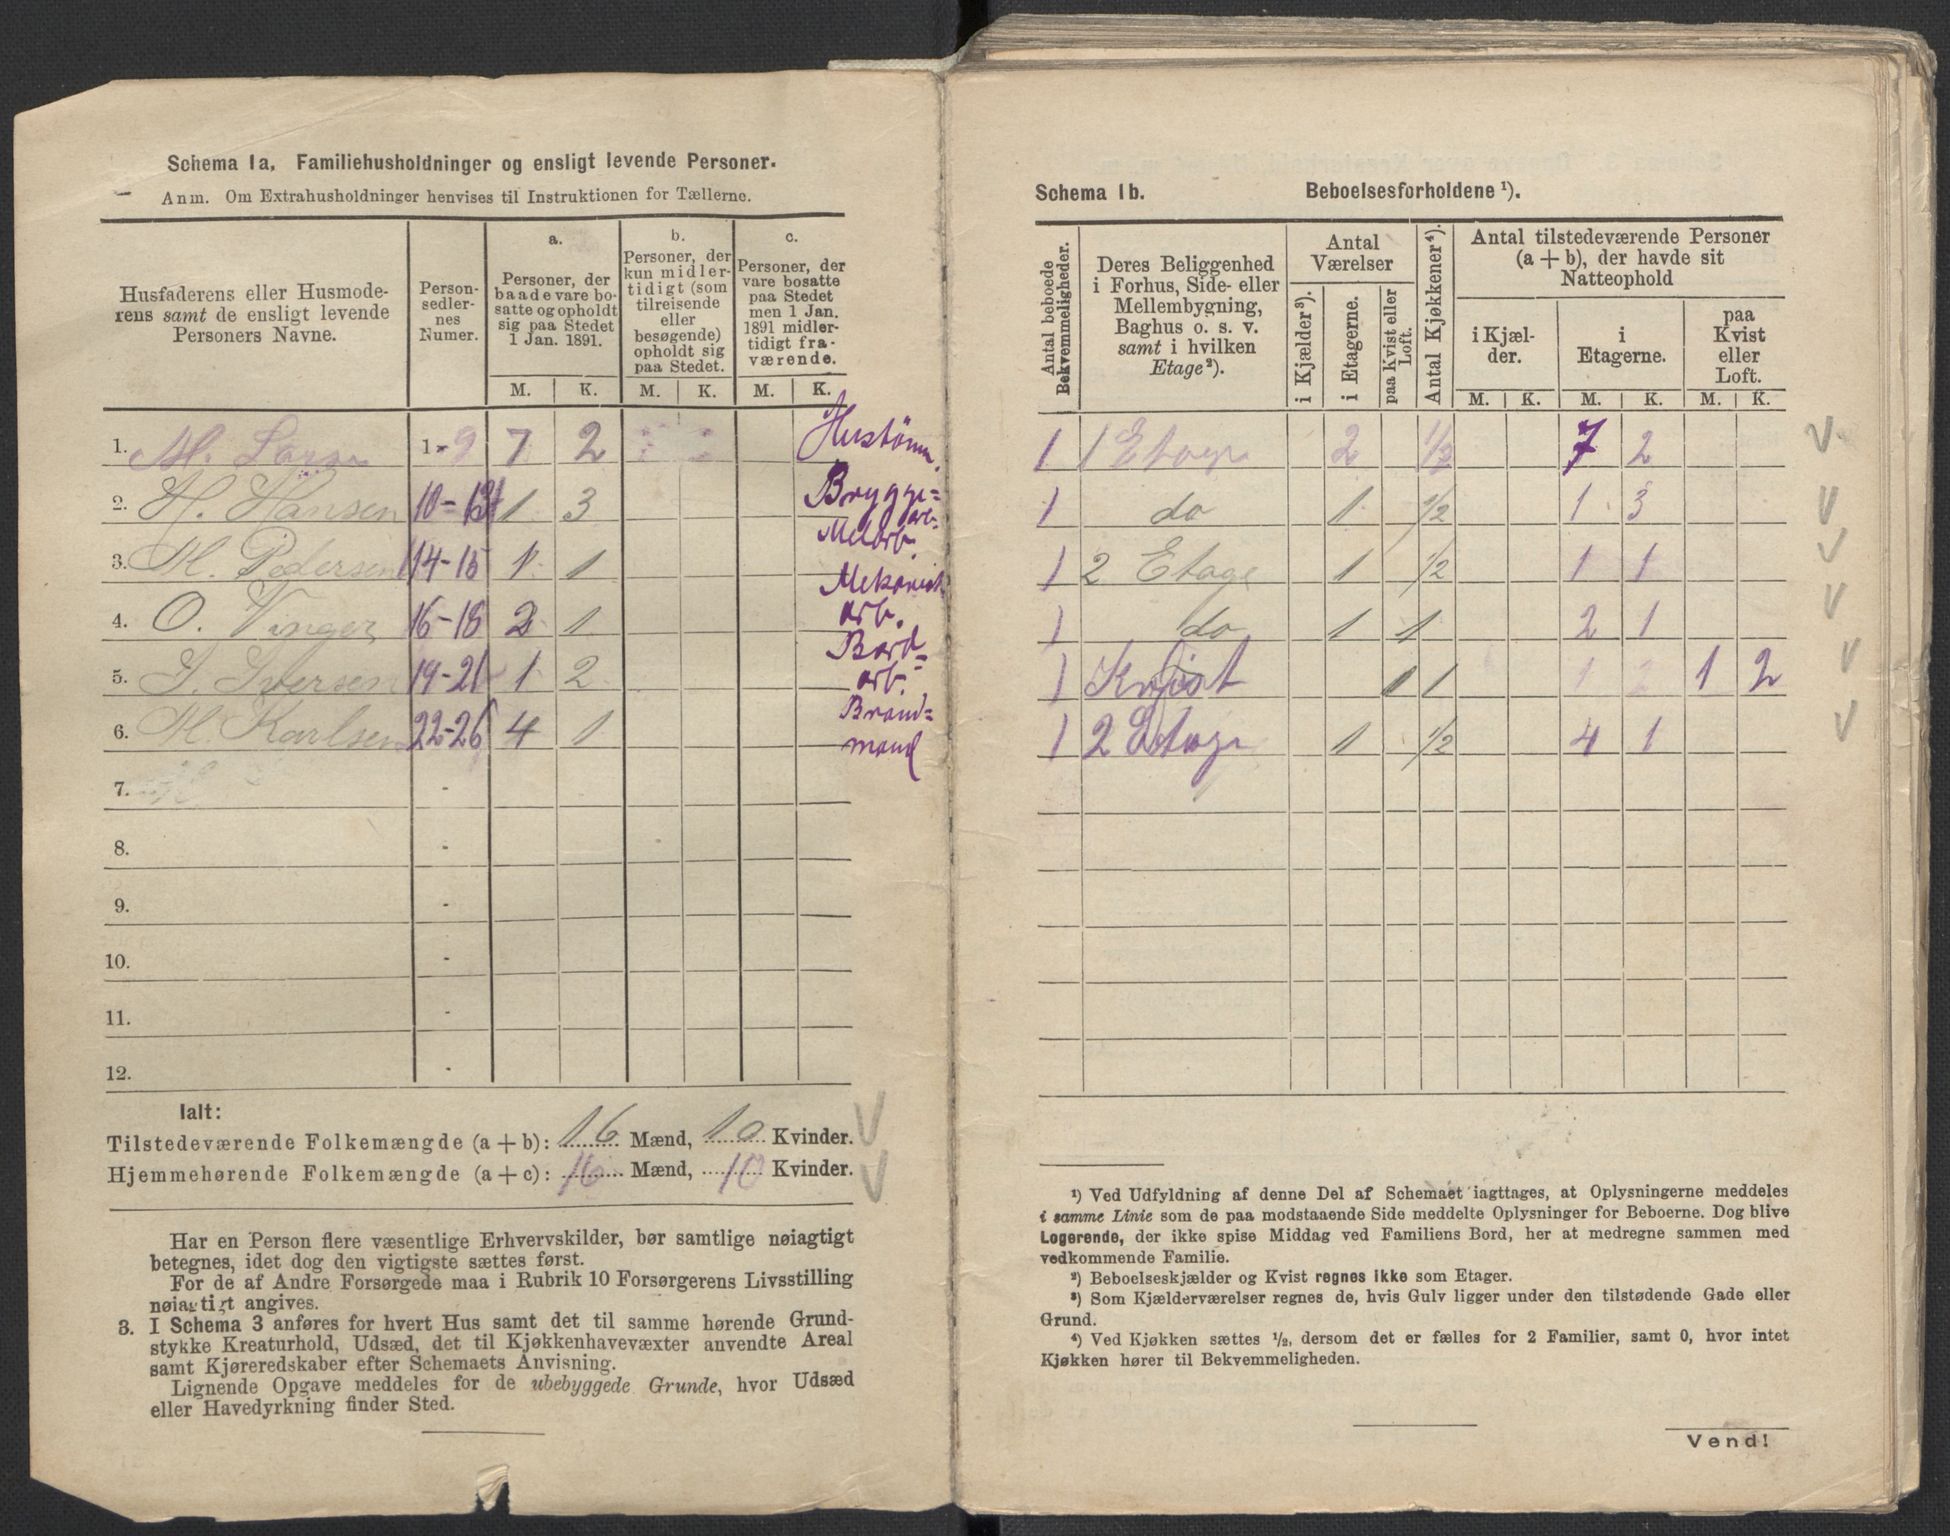 Schema 1 a. Familiehusholdninger og ensligt levende Personer.
Anm. Om Extrahusholdninger henvises til Instruktionen for Tællerne.
Husfaderens eller Husmode-
rens samt de ensligt levende
Personers Navne.
Person-
sedler-
nes
Numer.
a.
Personer, der
baade vare bo-
satte og opholdt
sig paa Stedet
1 Jan. 1891.
b.
Personer, der
kun midler-
tidigt (som
tilreisende
eller
besøgende)
opholdt sig
paa Stedet.
c.
Personer, der
vare bosatte
paa Stedet
men 1 Jan.
1891 midler-
tidigt fra-
værende.
M. K. M. K. M. K.
1. M. Larsen 1 - 9 7 2 Hustømm.
2. H. Hansen 10-13 1 3 Brygge=
arb.
3. M. Pedersen 14-15 1 1
4. O. Vinger 16-18 2 1 Mekanisk
arb.
5. I. Iversen 19-21 1 2 Bord=
arb.
6. M. Karlsen 22-26 4 1 Brand=
mand
7. -
8. -
9. -
10. -
11. -
12. -
Ialt:
Tilstedeværende Folkemængde (a + b): 16 Mænd, 10 Kvinder.
Hjemmehørende Folkemængde (a + c): 16 Mænd, 10 Kvinder.
Har en Person flere væsentlige Erhvervskilder, bør samtlige nøiagtigt
betegnes, idet dog den vigtigste sættes først.
For de af Andre Forsørgede maa i Rubrik 10 Forsørgerens Livsstilling
nøiagtigt angives.
3. I Schema 3 anføres for hvert Hus samt det til samme hørende Grund-
stykke Kreaturhold, Udsæd, det til Kjøkkenhavevæxter anvendte Areal
samt Kjøreredskaber efter Schemaets Anvisning.
Lignende Opgave meddeles for de ubebyggede Grunde, hvor Udsæd
eller Havedyrkning finder Sted.
Schema 1 b. Beboelsesforholdene ¹).
Antal beboede
Bekvemmeligheder.
Deres Beliggenhed
i Forhus, Side- eller
Mellembygning,
Baghus o. s. v.
samt i hvilken
Etage ²).
Antal
Værelser
i Kjælder ³).
i Etagerne.
paa Kvist eller
Loft.
Antal Kjøkkener ⁴).
Antal tilstedeværende Personer
(a + b), der havde sit
Natteophold
i Kjæl-
der.
i
Etagerne.
paa
Kvist
eller
Loft.
M. K. M. K. M. K.
1 1 Etage 2 1/2 7 2
1 do 1 1/2 1 3
1 2 Etage 1 1/2 1 1
1 do 1 1 2 1
1 Kvist 1 1 1 2 1 2
1 2 Etage 1 1/2 4 1
¹) Ved Udfyldning af denne Del af Schemaet iagttages, at Oplysningerne meddeles
i samme Linie som de paa modstaaende Side meddelte Oplysninger for Beboerne. Dog blive
Logerende, der ikke spise Middag ved Familiens Bord, her at medregne sammen med
vedkommende Familie.
²) Beboelseskjælder og Kvist regnes ikke som Etager.
³) Som Kjælderværelser regnes de, hvis Gulv ligger under den tilstødende Gade eller
Grund.
⁴) Ved Kjøkken sættes ½, dersom det er fælles for 2 Familier, samt 0, hvor intet
Kjøkken hører til Bekvemmeligheden.
Vend!